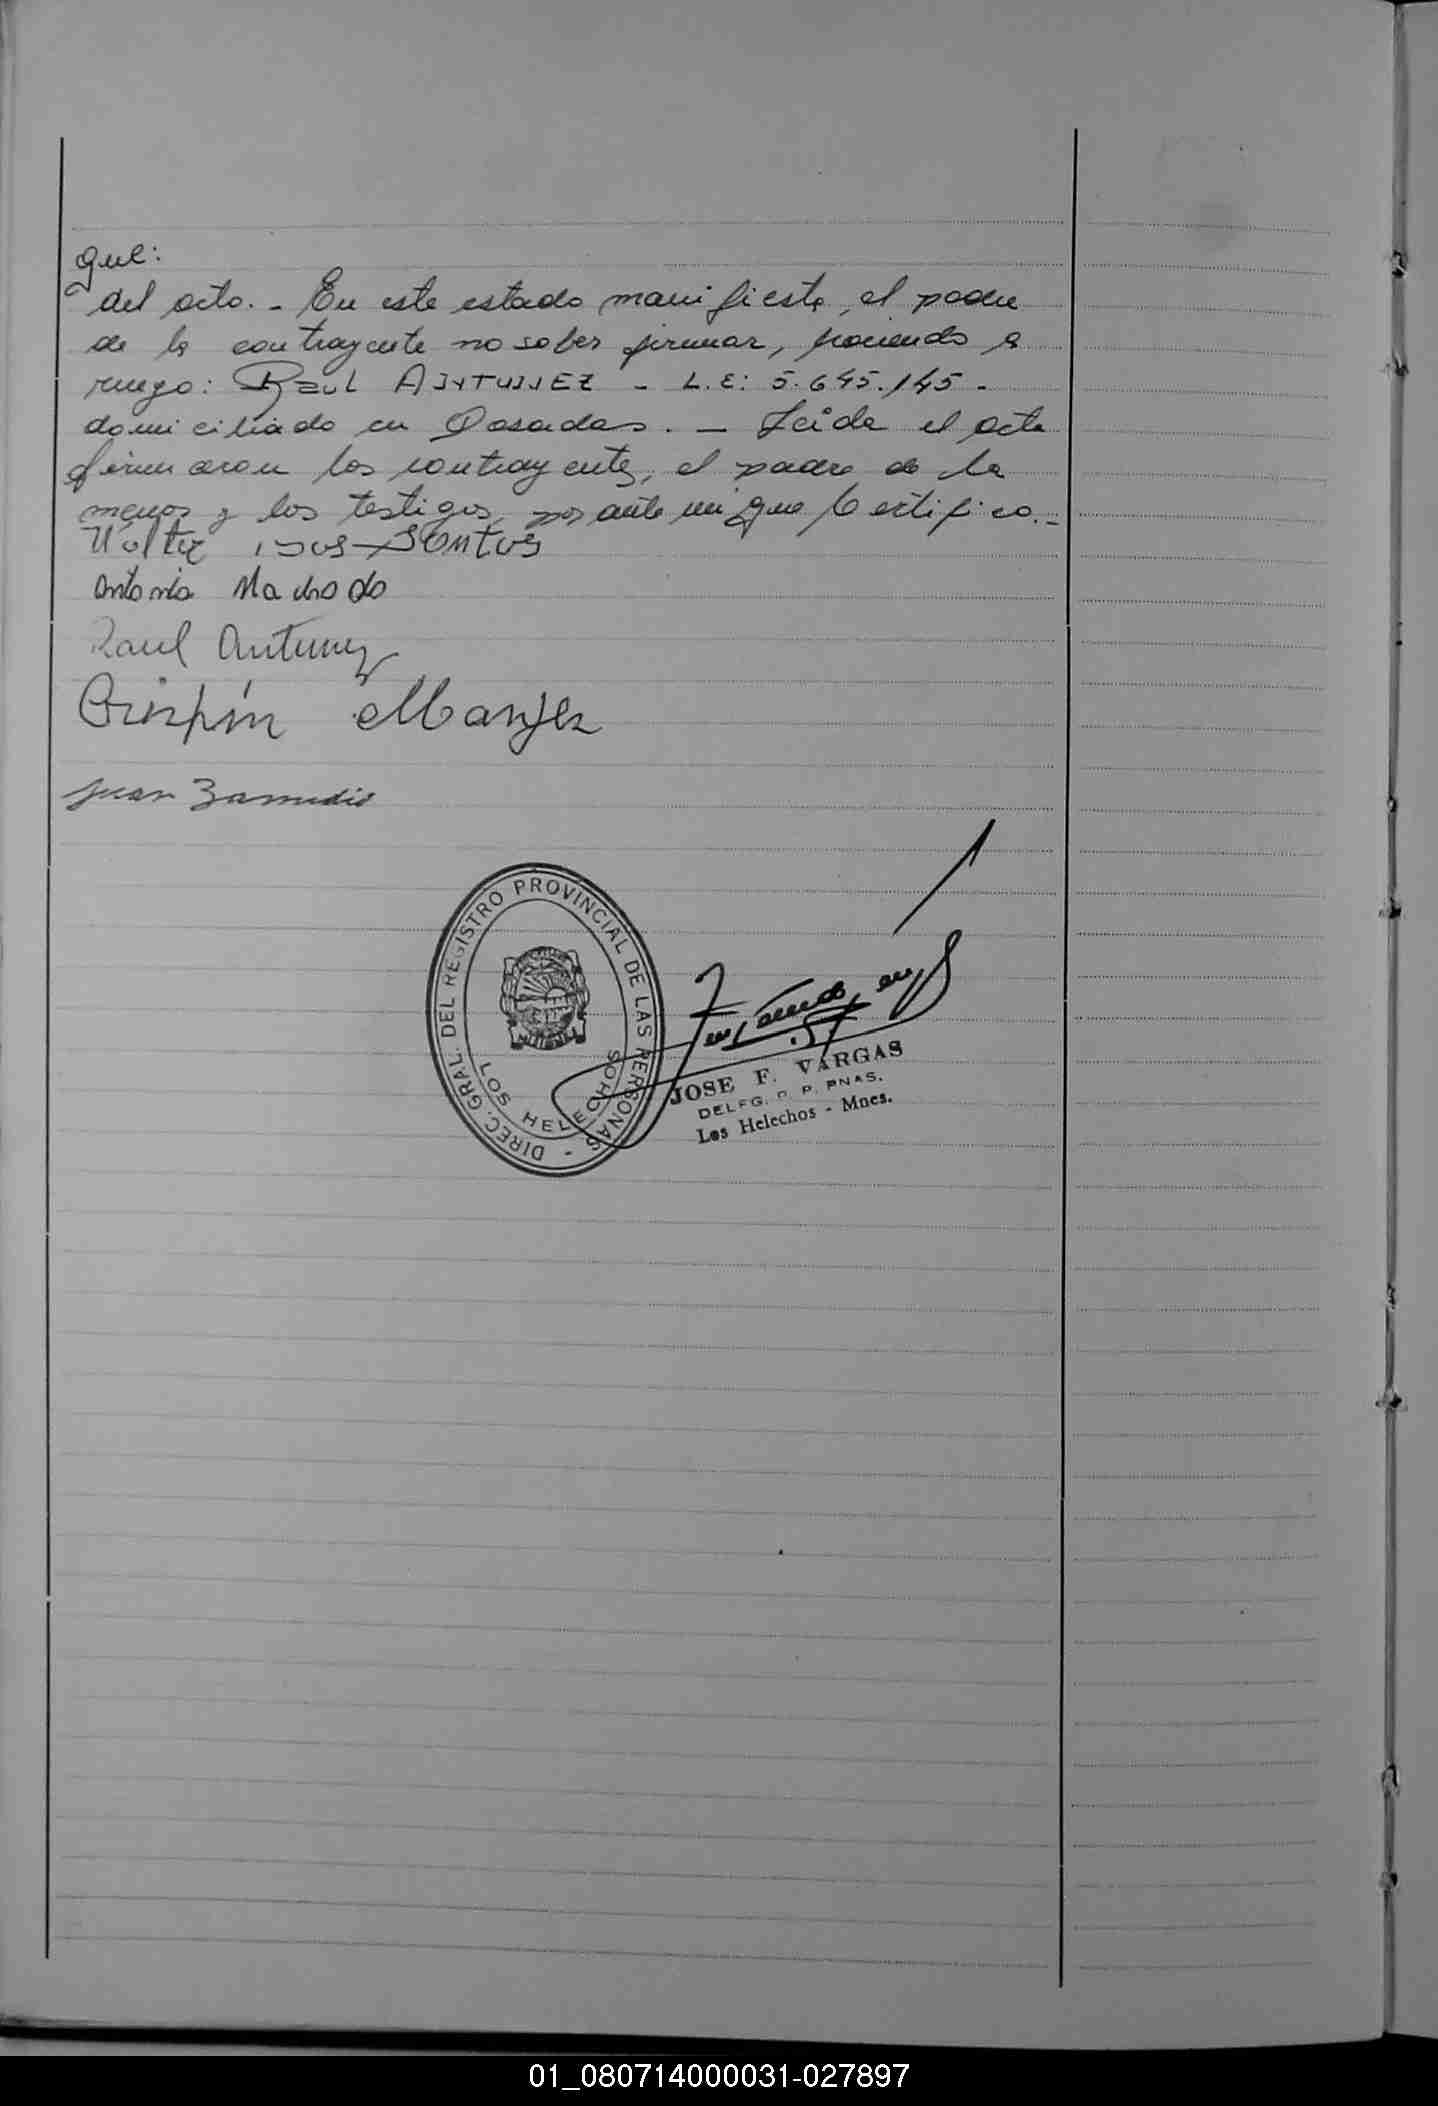 que:
del acto. - En este estado manifiesta, el padre
de la contrayente no saber firmar, haciendo a
ruego: Raul ANTUNEZ - L.E: 5.645.145 -
domiciliado en Posadas. - Leída el acta
firmaron los contrayentes, el padre de la
menor y los testigos, por ante mi que Certifico.-
Walter Dos Santos
Antonia Machado
Raul Antunez
Crispín
Juan Zamudio
DIREC. GRAL. DEL REGISTRO PROVINCIAL DE LAS PERSONAS -
LOS HELECHOS
JOSE F. VARGAS
DELEG. R. P. PNAS.
Los Helechos - Mnes.
01_080714000031-027897